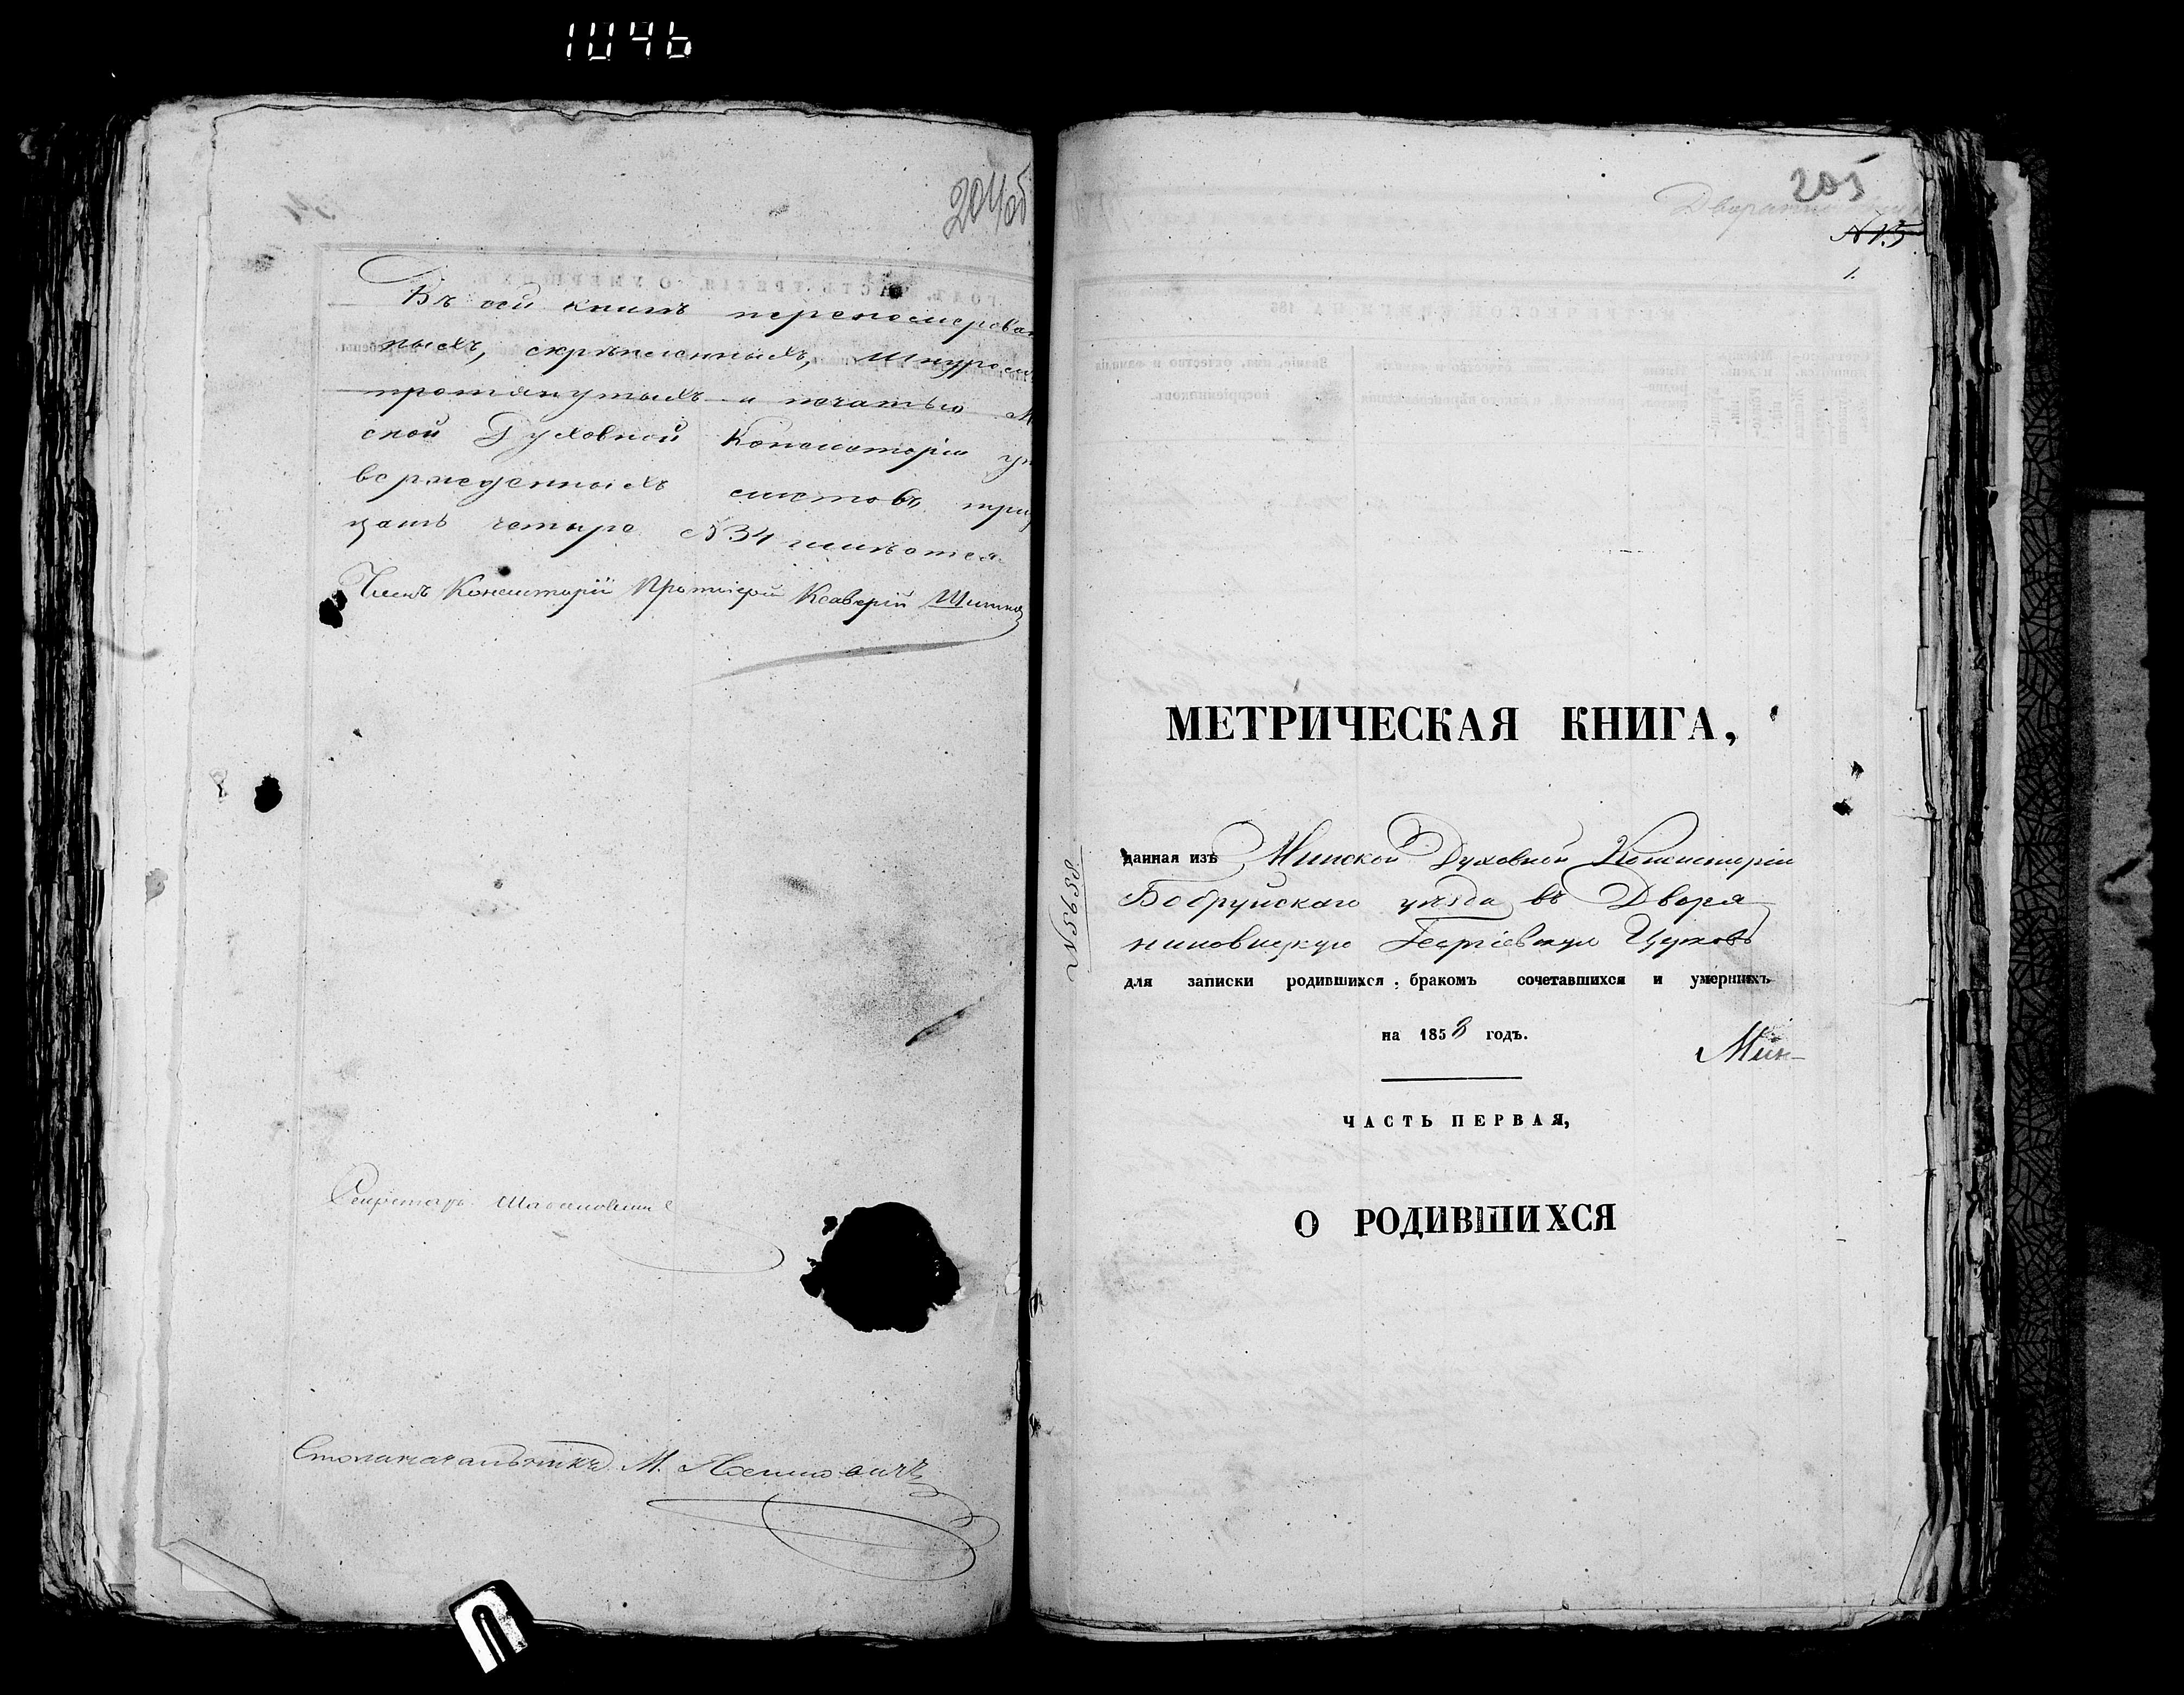 1046
204об
Въ сей книгѣ перенумерован
ныхъ, скрѣпленныхъ, шнуромъ
протянутыхъ и печатью М
ской Духовной Консисторіи ут
вержденныхъ листовъ трид
цать четыре №34 имѣется
Членъ Консисторіи Протоіерей Ксаверій
Секретарь
Столоначальникъ М.
205
№ 15
1.
МЕТРИЧЕСКАЯ КНИГА,
данная изъ Минской Духовной Консисторіи
Бобруйскаго уѣзда въ Дворя
ниновицкую Георгіевскую Церковь
для записки родившихся, бракомъ сочетавшихся и умершихъ
на 1858 годъ.
Мин-
№5658
ЧАСТЬ ПЕРВАЯ,
О РОДИВШИХСЯ